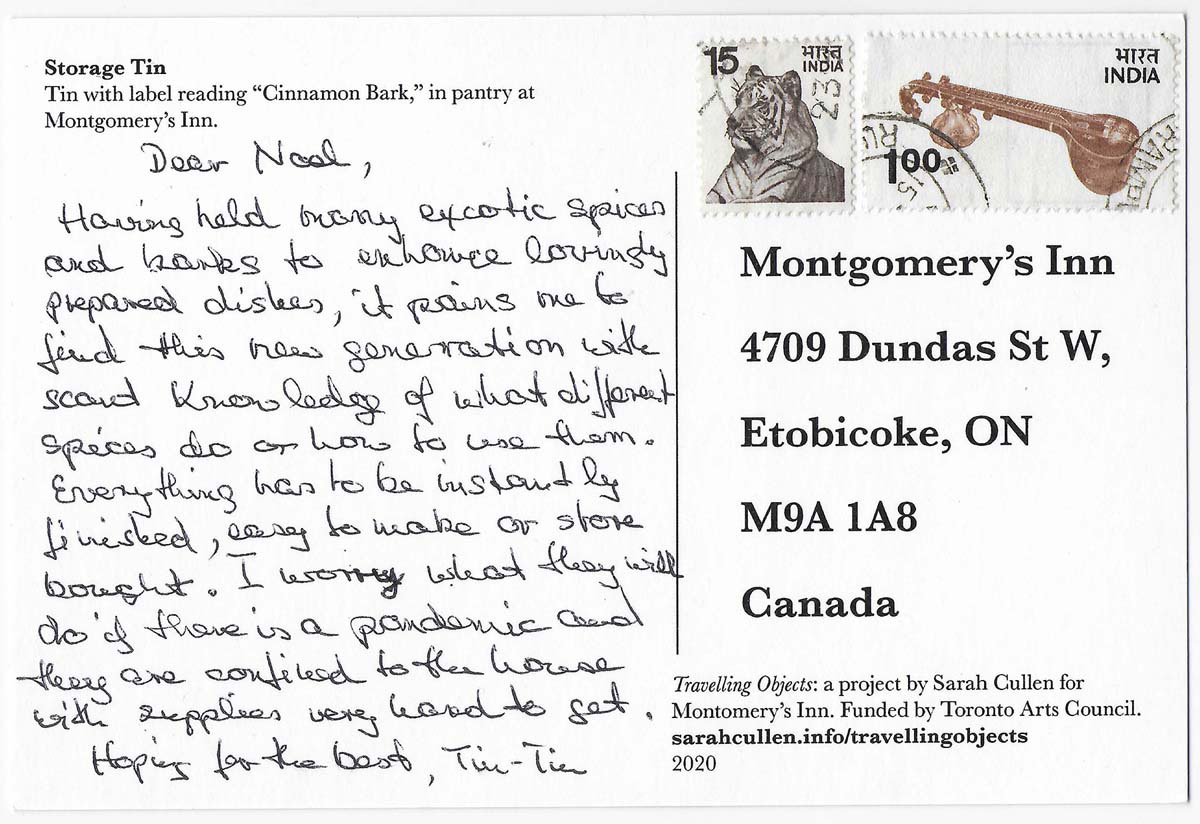 Storage Tin
Tin with label reading “Cinnamon Bark,” in pantry at
Montgomery’s Inn.
Dear
Having held many excotic spices
and barks to enhance lovingly
prepared dishes, it pains me to
find this new generation with
scant Knowledge of what different
spices do or how to use them.
Everything has to be instantly
finished, easy to make or store
bought. I worry what they will
do if there is a pandemic and
they are confined to the house
with supplies very hard to get.
Hoping for the best, Tin-Tin
15 भारत
INDIA
भारत
INDIA
1.00
Montgomery’s Inn
4709 Dundas St W,
Etobicoke, ON
M9A 1A8
Canada
Travelling Objects: a project by Sarah Cullen for
Montomery’s Inn. Funded by Toronto Arts Council.
sarahcullen.info/travellingobjects
2020